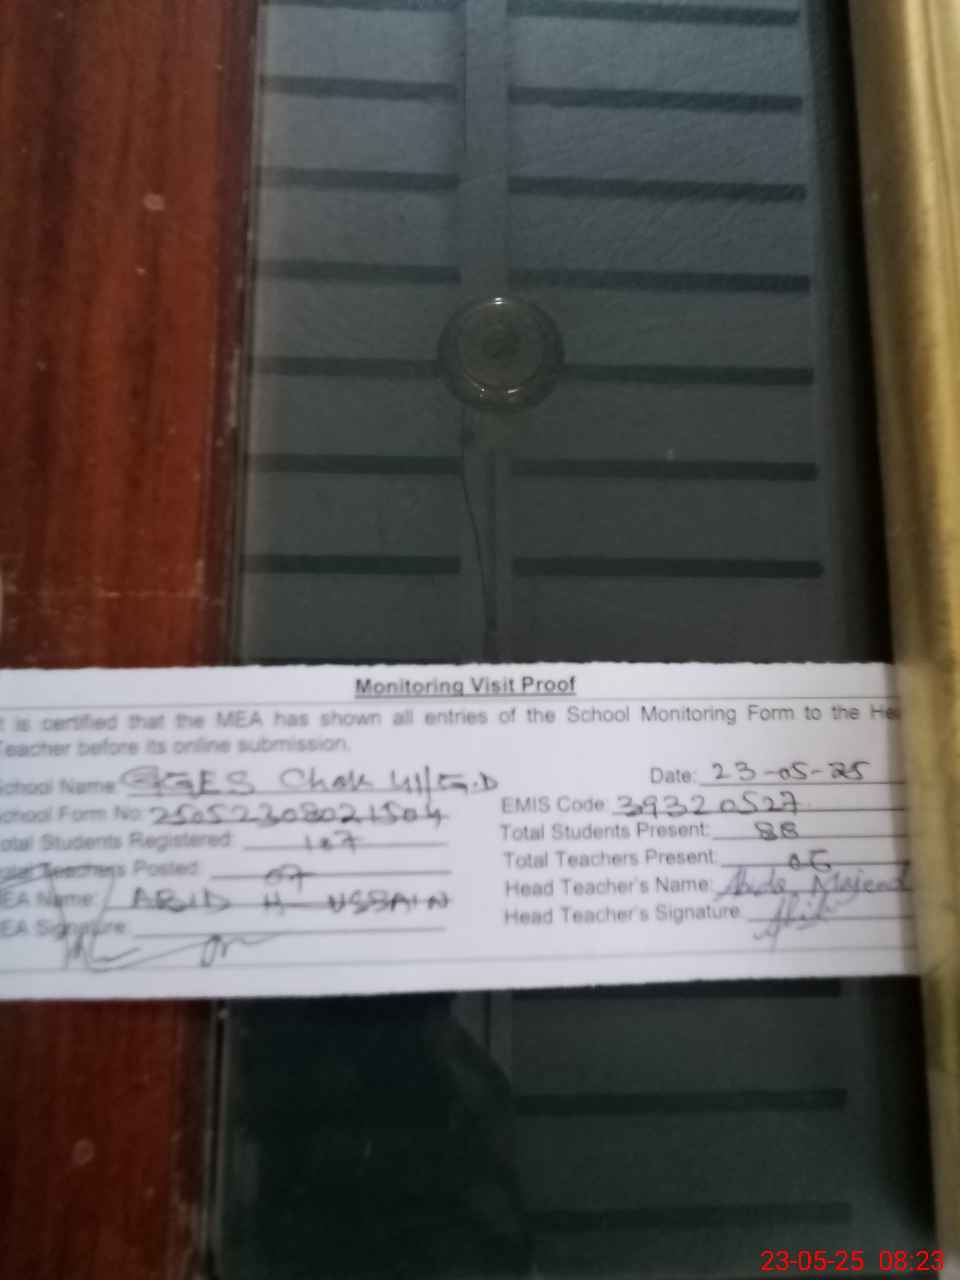 Monitoring Visit Proof
t is certified that the MEA has shown all entries of the School Monitoring Form to the He
Teacher before its online submission.
chool Name GGES Chak 41/G.D Date: 23-05-25
chool Form No: 25052308021504 EMIS Code: 39320527
otal Students Registered: 107 Total Students Present: 88
Teachers Posted: 07 Total Teachers Present: 06
EA Name: ABID HUSSAIN Head Teacher's Name: Abida Majeed
EA Signature: Head Teacher's Signature
23-05-25 08:23